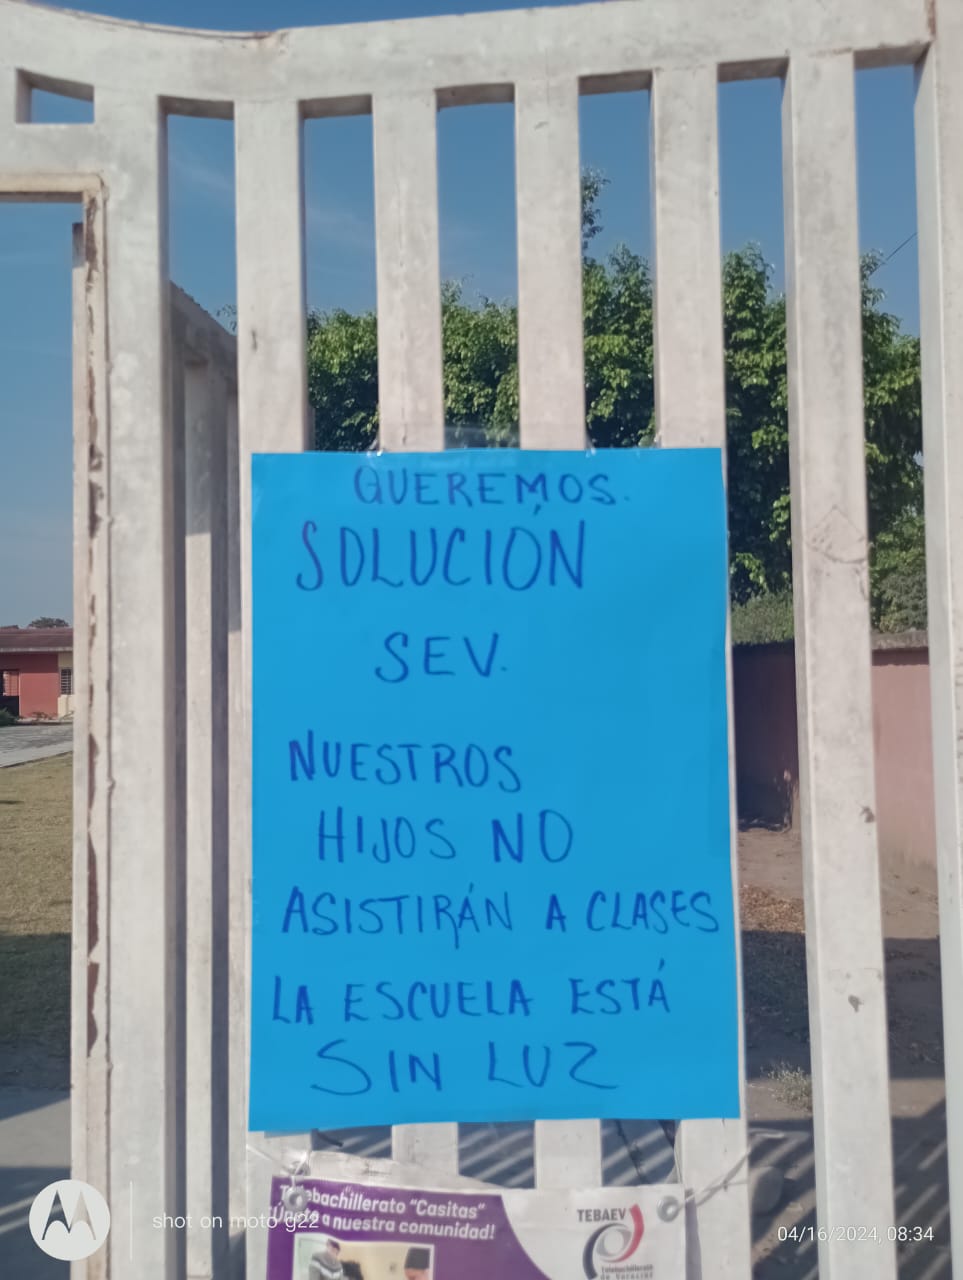 QUEREMOS.
SOLUCIÓN
SEV.
NUESTROS
HIJOS NO
ASISTIRÁN A CLASES
LA ESCUELA ESTÁ
SIN LUZ
Telebachillerato "Casitas"
¡Únete a nuestra comunidad!
TEBAEV
Telebachillerato
de Veracruz
shot on moto g22
04/16/2024, 08:34